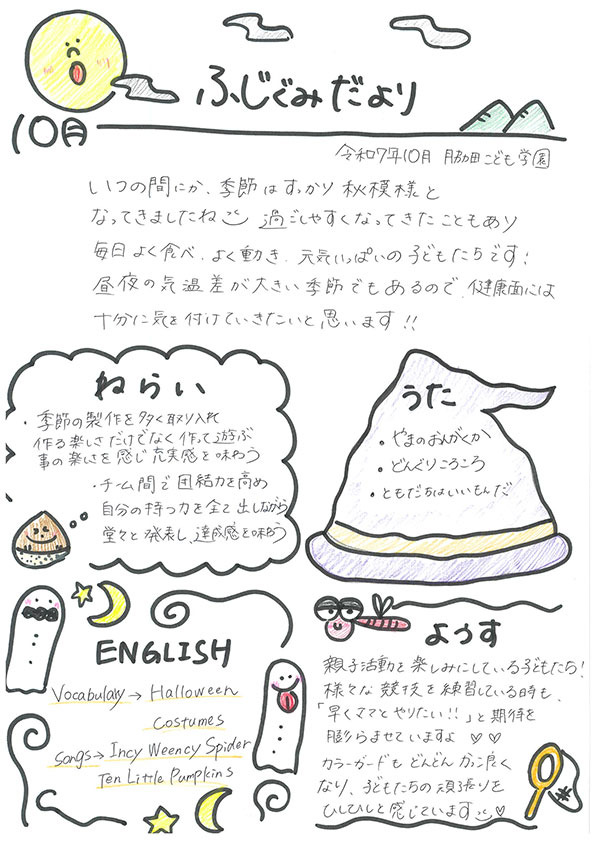 ふじぐみだより
10月
令和7年10月 脇田こども学園
いつの間にか、季節はすっかり秋模様と
なってきましたね 過ごしやすくなってきたこともあり
毎日よく食べ、よく動き、元気いっぱいの子どもたちです!
昼夜の気温差が大きい季節でもあるので、健康面には
十分に気を付けていきたいと思います!!
ねらい
・季節の製作を多く取り入れ
作る楽しさだけでなく作って遊ぶ
事の楽しさを感じ充実感を味わう
・チーム間で団結力を高め
自分の持つ力を全て出しながら
堂々と発表し、達成感を味わう
うた
・やまのおんがくか
・どんぐりころころ
・ともだちはいいもんだ
ENGLISH
Vocabulary → Halloween
Costumes
Songs → Incy Weency Spider
Ten Little Pumpkins
ようす
親子活動を楽しみにしている子どもたち!
様々な競技を練習している時も、
「早くママとやりたい!!」と期待を
膨らませていますよ ♡♡
カラーガードもどんどんかっこ良く
なり、子どもたちの頑張りを
ひしひしと感じています♡